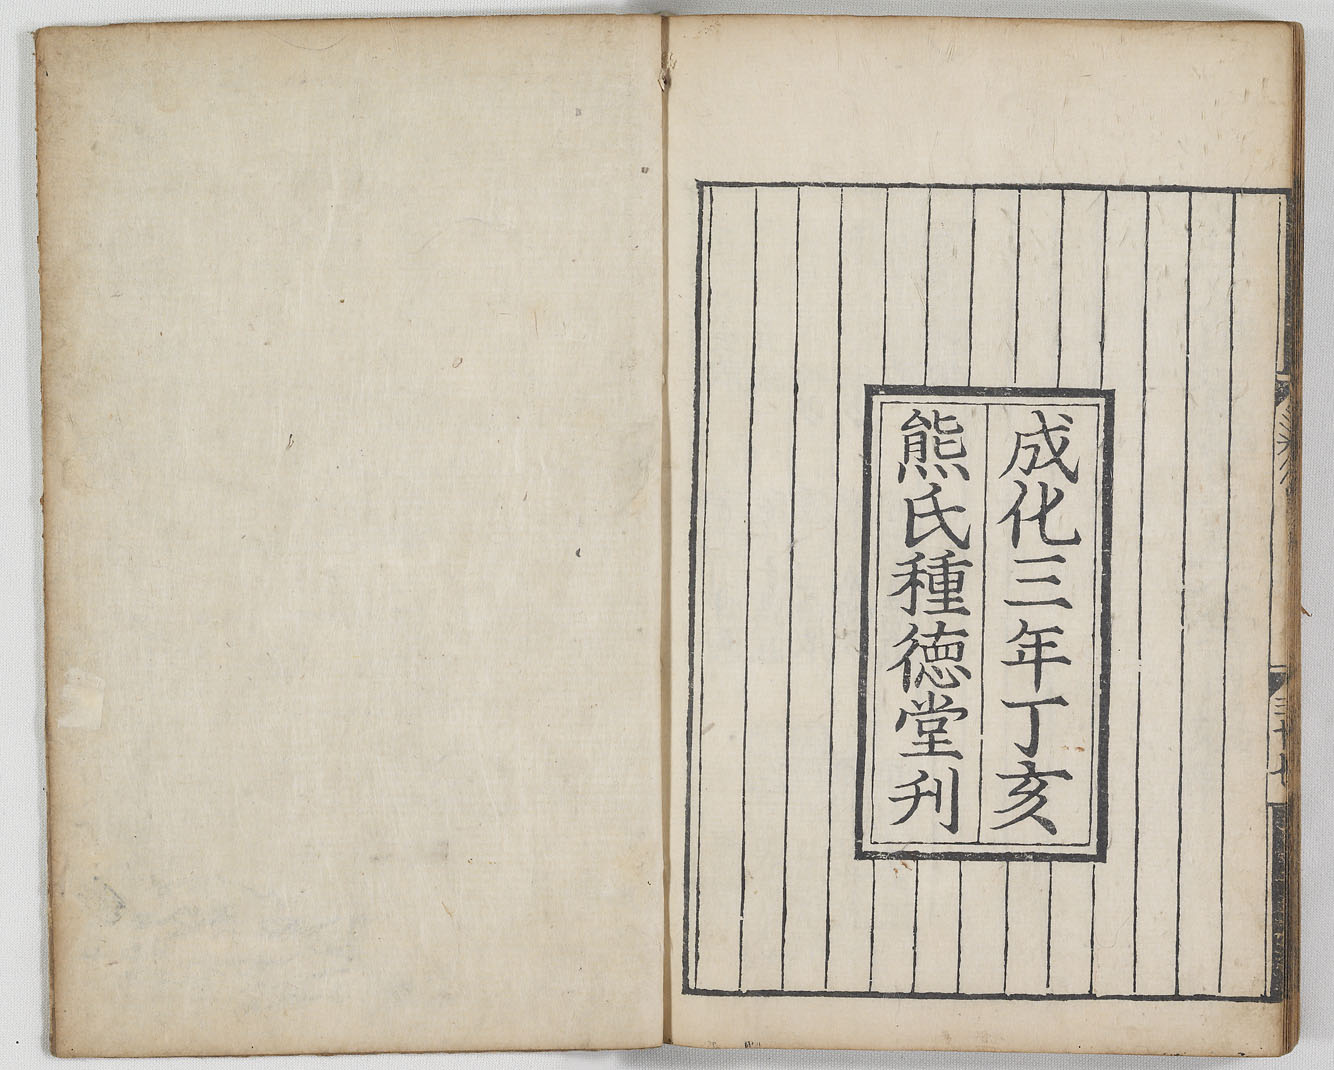 成化三年丁亥
熊氏種德堂刊